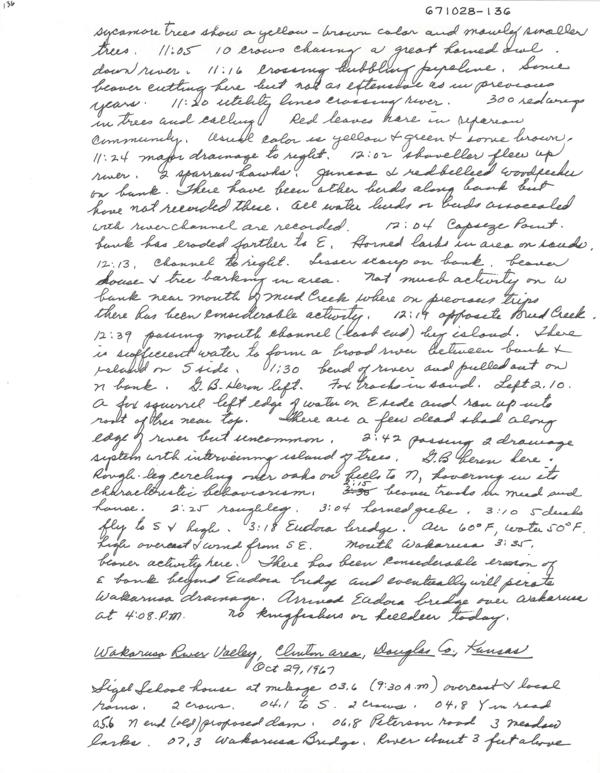 136
671028-136
sycamore trees show a yellow-brown color and mainly smaller
trees. 11:05 10 crows chasing a great horned owl
down river. 11:16 crossing bubbling pipeline. Some
beaver cutting here but not as extensive as in previous
years. 11:20 utility lines crossing river. 300 redwings
in trees and calling. Red leaves rare in riparian
community. Usual color is yellow & green & some brown.
11:24 major drainage to right. 12:02 shoveller flew up
river. 2 sparrow hawks. Juncos & redbellied woodpecker
on bank. There have been other birds along bank but
have not recorded these. All water birds or birds associated
with river channel are recorded. 12:04 Capsize Point.
bank has eroded farther to E. Horned larks in area on sands.
12:13. Channel to right. Lesser scaup on bank. beaver
house & tree barking in area. Not much activity on W
bank near mouth of Mud Creek where on previous trips
there has been considerable activity. 12:19 opposite Mud Creek.
12:39 passing mouth channel (east end) big island. There
is sufficient water to form a broad river between bank &
island on S side. 1:30 bend of river and pulled out on
N bank. G.B. Heron left. Fox tracks in sand. Left 2:10.
A fox squirrel left edge of water on E side and ran up into
root of tree near top. There are a few dead shad along
edge of river but uncommon. 2:42 passing 2 drainage
system with intervening island of trees. G.B heron here.
Rough-leg circling over oaks on hills to N, hovering in its
characteristic behaviorism. 2:15 beaver tracks in mud and
house. 2:25 roughleg. 3:04 horned grebe. 3:10 5 ducks
fly to S & high. 3:18 Eudora bridge. Air 60°F, water 50°F.
high overcast & wind from SE. Mouth Wakarusa 3:35.
beaver activity here. There has been considerable erosion of
E bank beyond Eudora bridge and eventually will pirate
Wakarusa drainage. Arrived Eudora bridge over Wakarusa
at 4:08 P.M. No kingfishers or killdeer today.
Wakarusa River Valley, Clinton area, Douglas Co, Kansas
Oct 29, 1967
Sigel School house at mileage 03.6 (9:30 A.M) overcast & local
rains. 2 crows. 04.1 to S. 2 crows. 04.8 Y in road
05.6 N end (old) proposed dam. 06.8 Peterson road 3 meadow
larks. 07.3 Wakarusa Bridge. River about 3 feet above